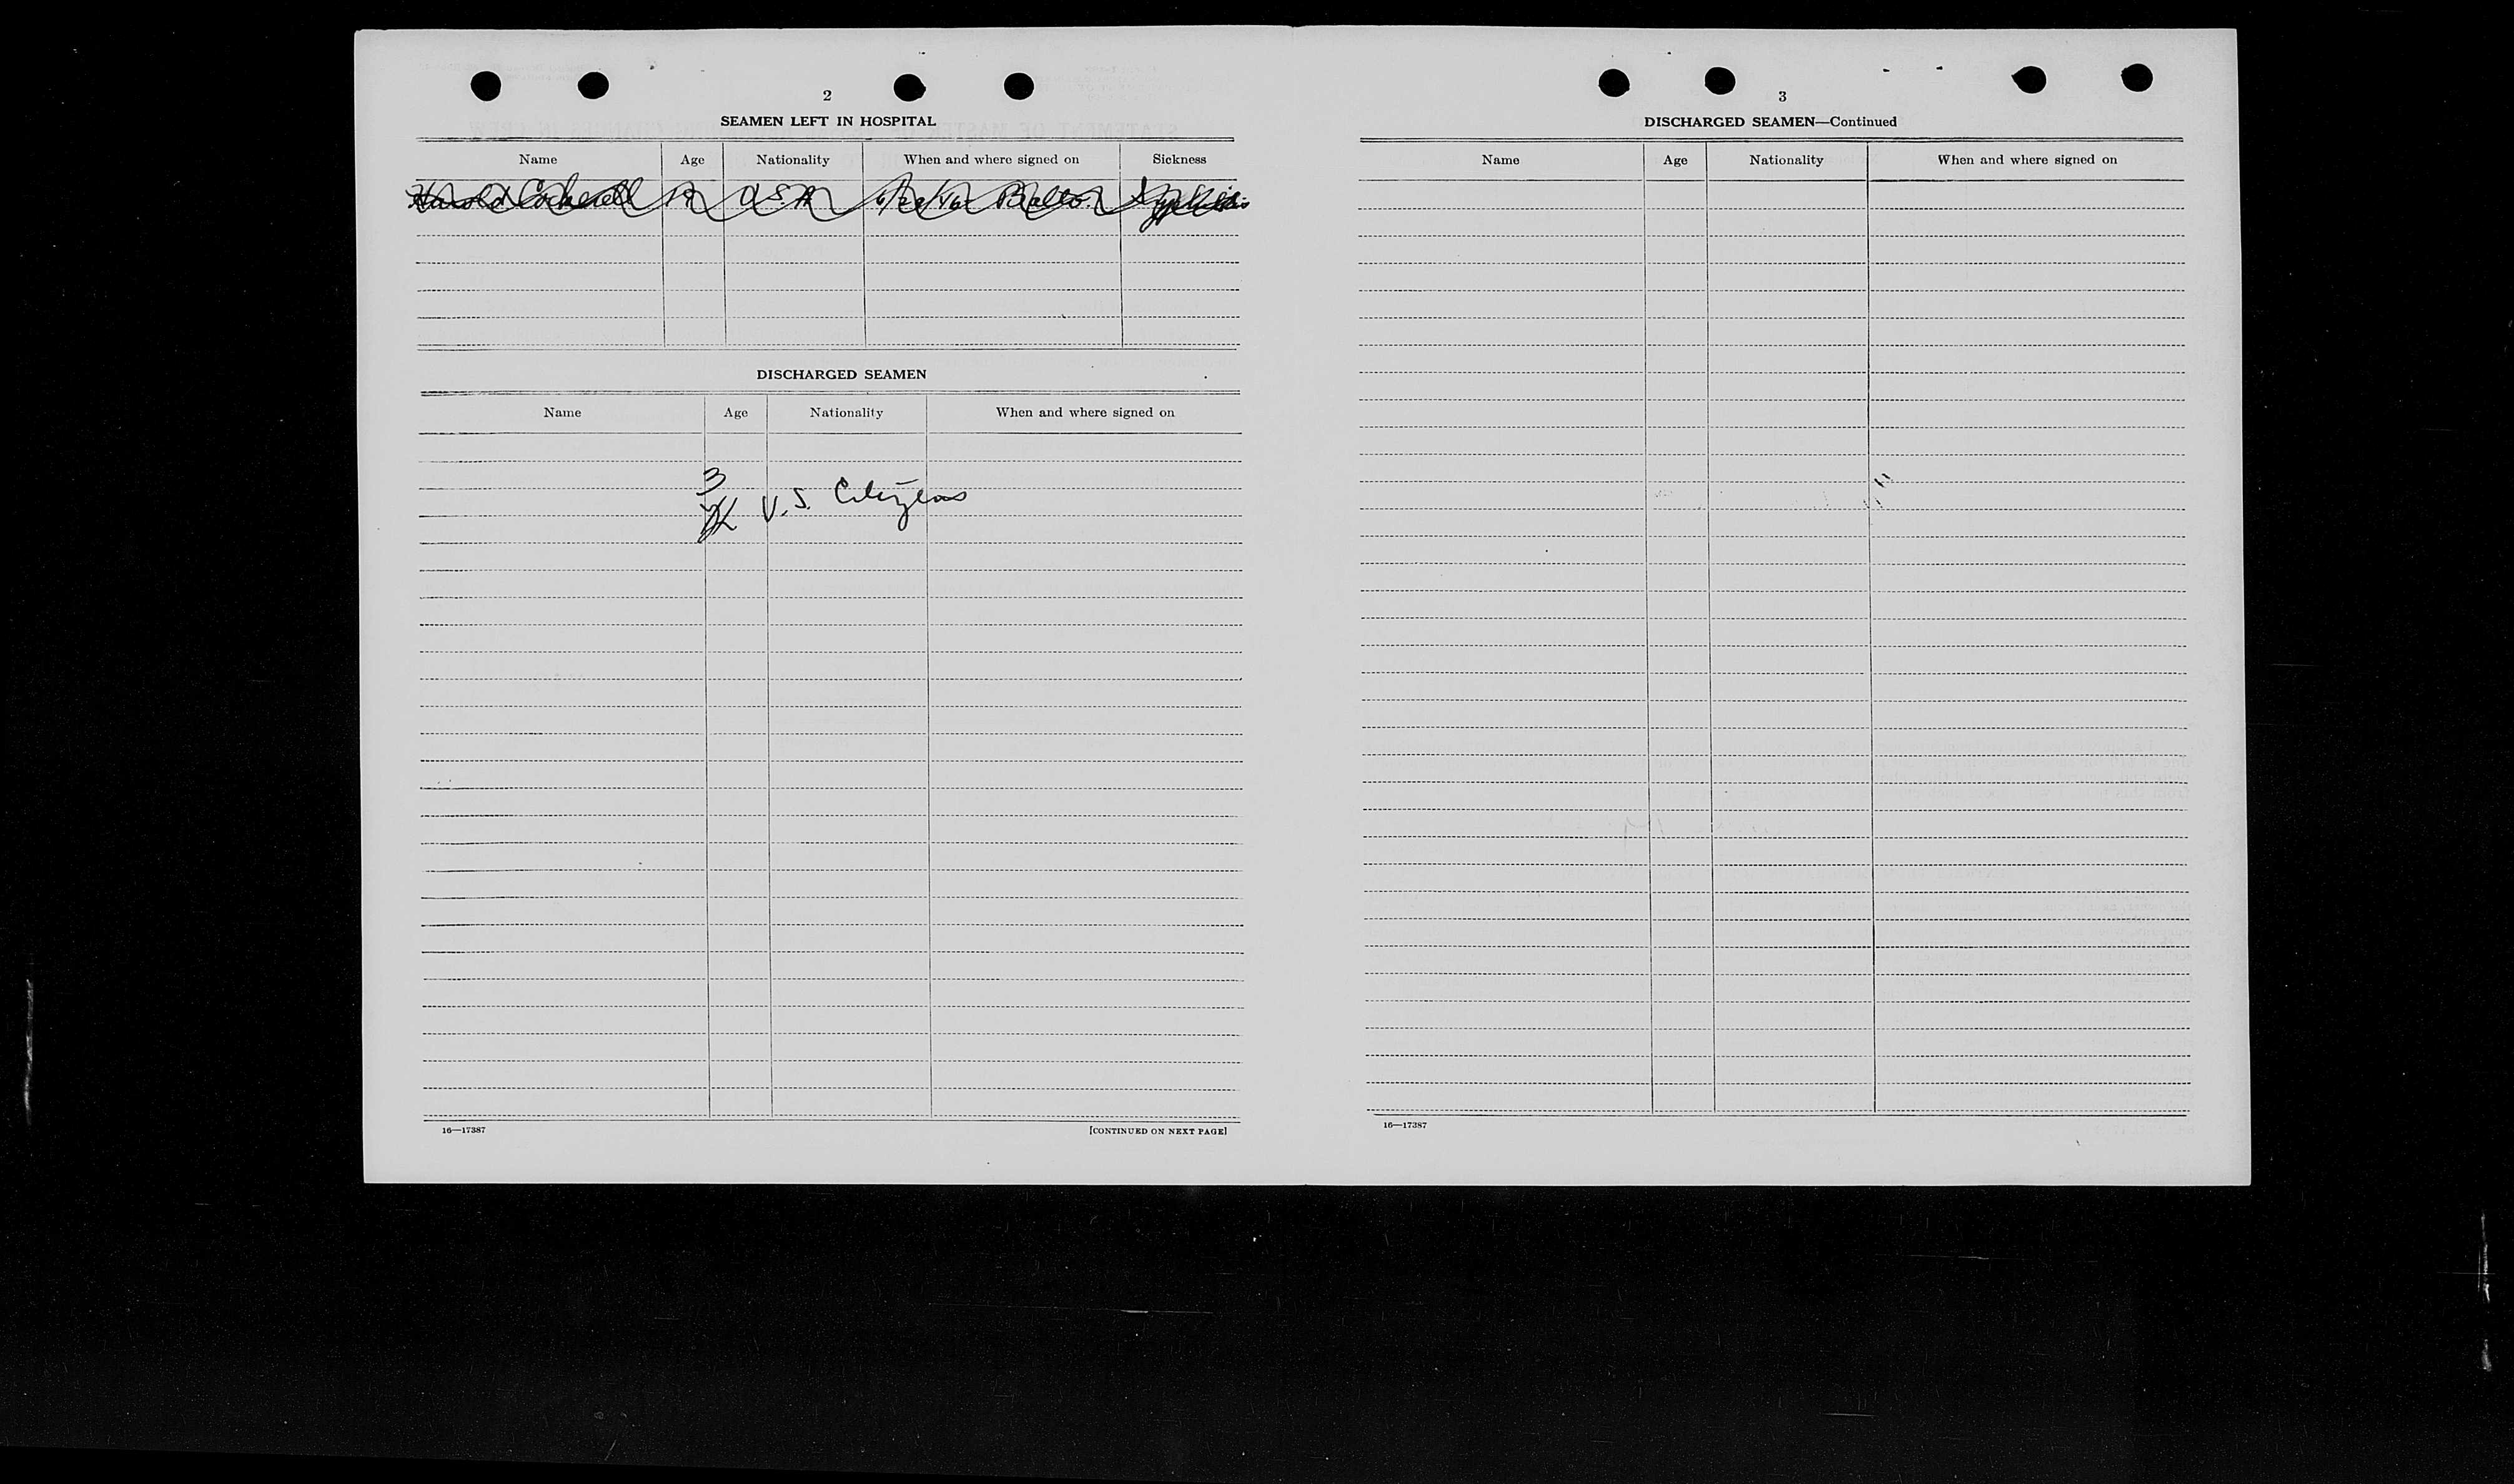 2
SEAMEN LEFT IN HOSPITAL
Name Age Nationality When and where signed on Sickness
Harold Cockerell U.S.A. Balto. Syphilis
DISCHARGED SEAMEN
Name Age Nationality When and where signed on
3
U.S. Citizens
16—17387 [CONTINUED ON NEXT PAGE]
3
DISCHARGED SEAMEN—Continued
Name Age Nationality When and where signed on
16—17387